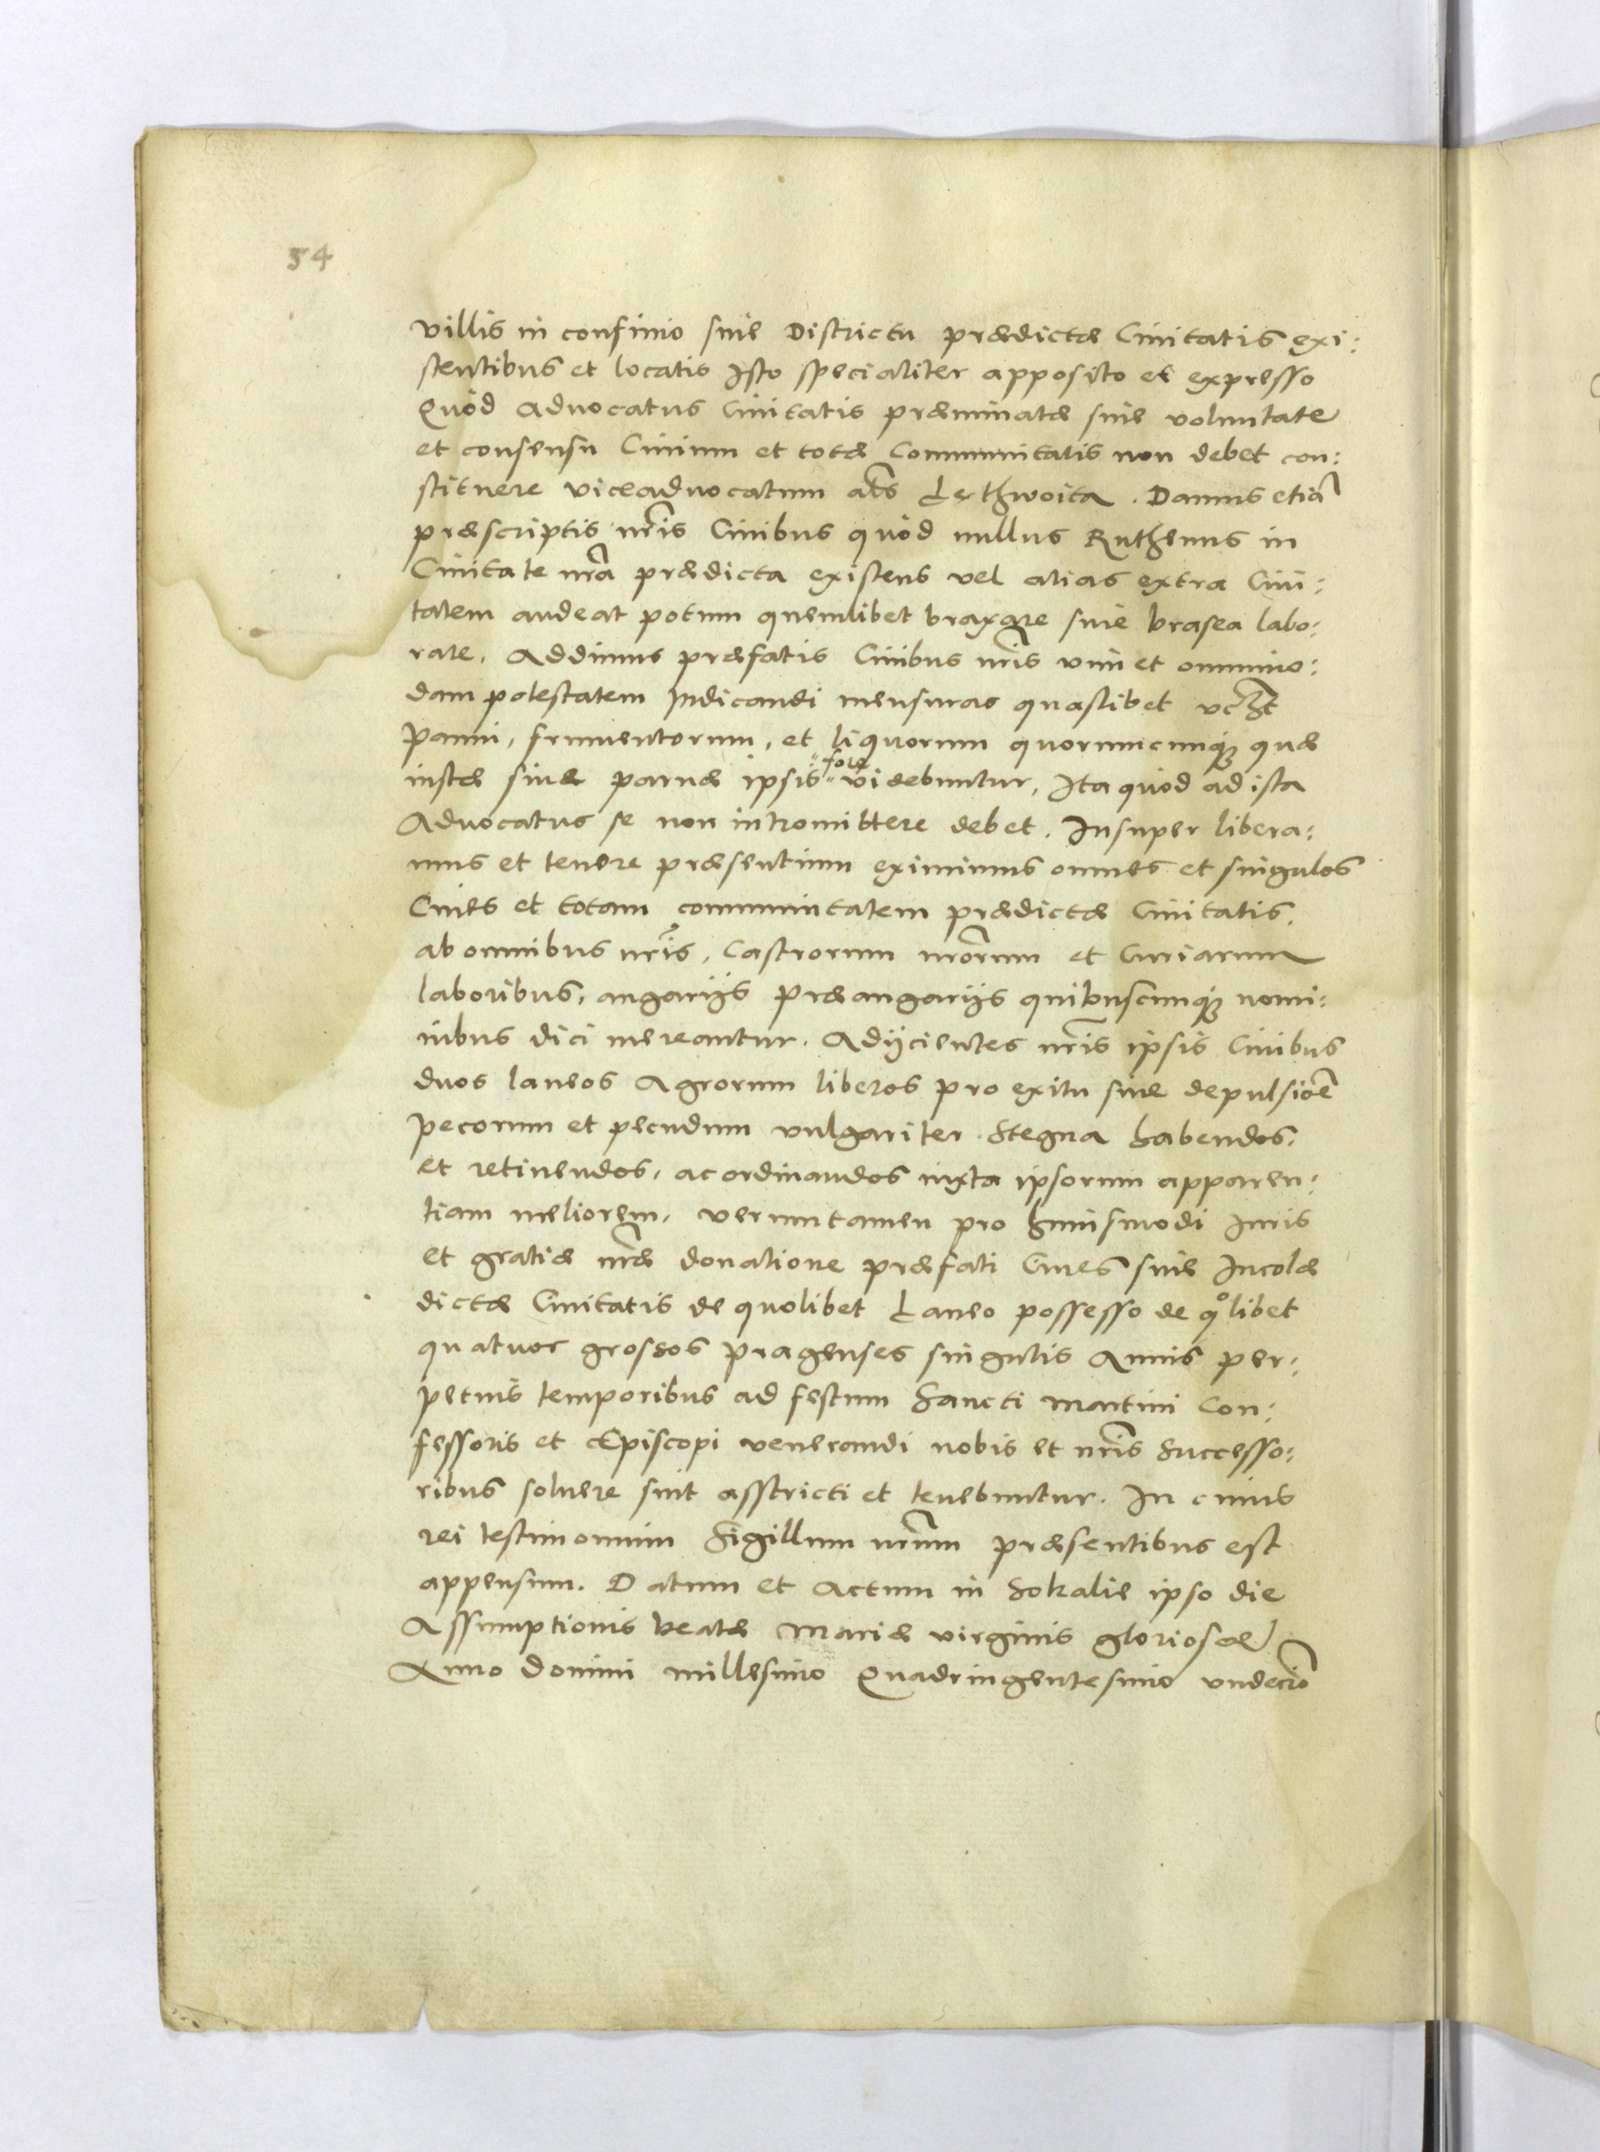 54
villis in confinio siue Districtu prædictæ Ciuitatis exi:
stentibus et locatis Isto specialiter apposito et expresso
Quòd Advocatus Ciuitatis prænominatæ sine voluntate
et consensu Ciuium et totæ Communitatis non debet con:
stituere viceadvocatum als Lethwoita. Damus etiā
præscriptis nr̄is Ciuibus quòd nullus Ruthenus in
Ciuitate nr̄a prædicta existens vel alias extra Ciui:
tatem audeat potum quemlibet braxare siue brasea labo:
rare. Addimus præfatis Ciuibus nr̄is vim et omnimo:
dam potestatem Iudicandi mensuras quaslibet vcꝫt
panni, frumentorum, et liquorum quorumcunqꝫ quæ
iustæ siue paruæ ipsis fore videbuntur, Ita quòd ad ista
Advocatus se non intromittere debet. Insuper libera:
mus et tenore præsentium eximimus omnes et singulos
Ciues et totam communitatem prædictæ Ciuitatis,
ab omnibus nr̄is, Castrorum nr̄orum et Curiarum
laboribus, angarijs præangarijs quibuscunqꝫ nomi:
nibus dici mereantur. Adijcientes nr̄is ipsis Ciuibus
duos laneos Agrorum liberos pro exitu siue depulsiōe
pecorum et pecudum vulgariter Stegna habendos,
et retinendos, ac ordinandos iuxta ipsorum apparen:
tiam meliorem, veruntamen pro huiusmodi Iuris
et gratiæ nr̄æ donatione præfati Ciues siue Incolæ
dictæ Ciuitatis de quolibet Laneo possesso de qºlibet
quatuor grossos pragenses singulis Annis per:
petuis temporibus ad festum Sancti Martini Con:
fessoris et Episcopi venerandi nobis et nr̄is Successo:
ribus soluere sint asstricti et tenebuntur. In cuius
rei testimonium Sigillum nr̄um præsentibus est
appensum. Datum et Actum in Sokalie ipso die
Assumptionis beatæ Mariæ virginis gloriosæ
Anno Domini millesimo Quadringentesimo vndecīo